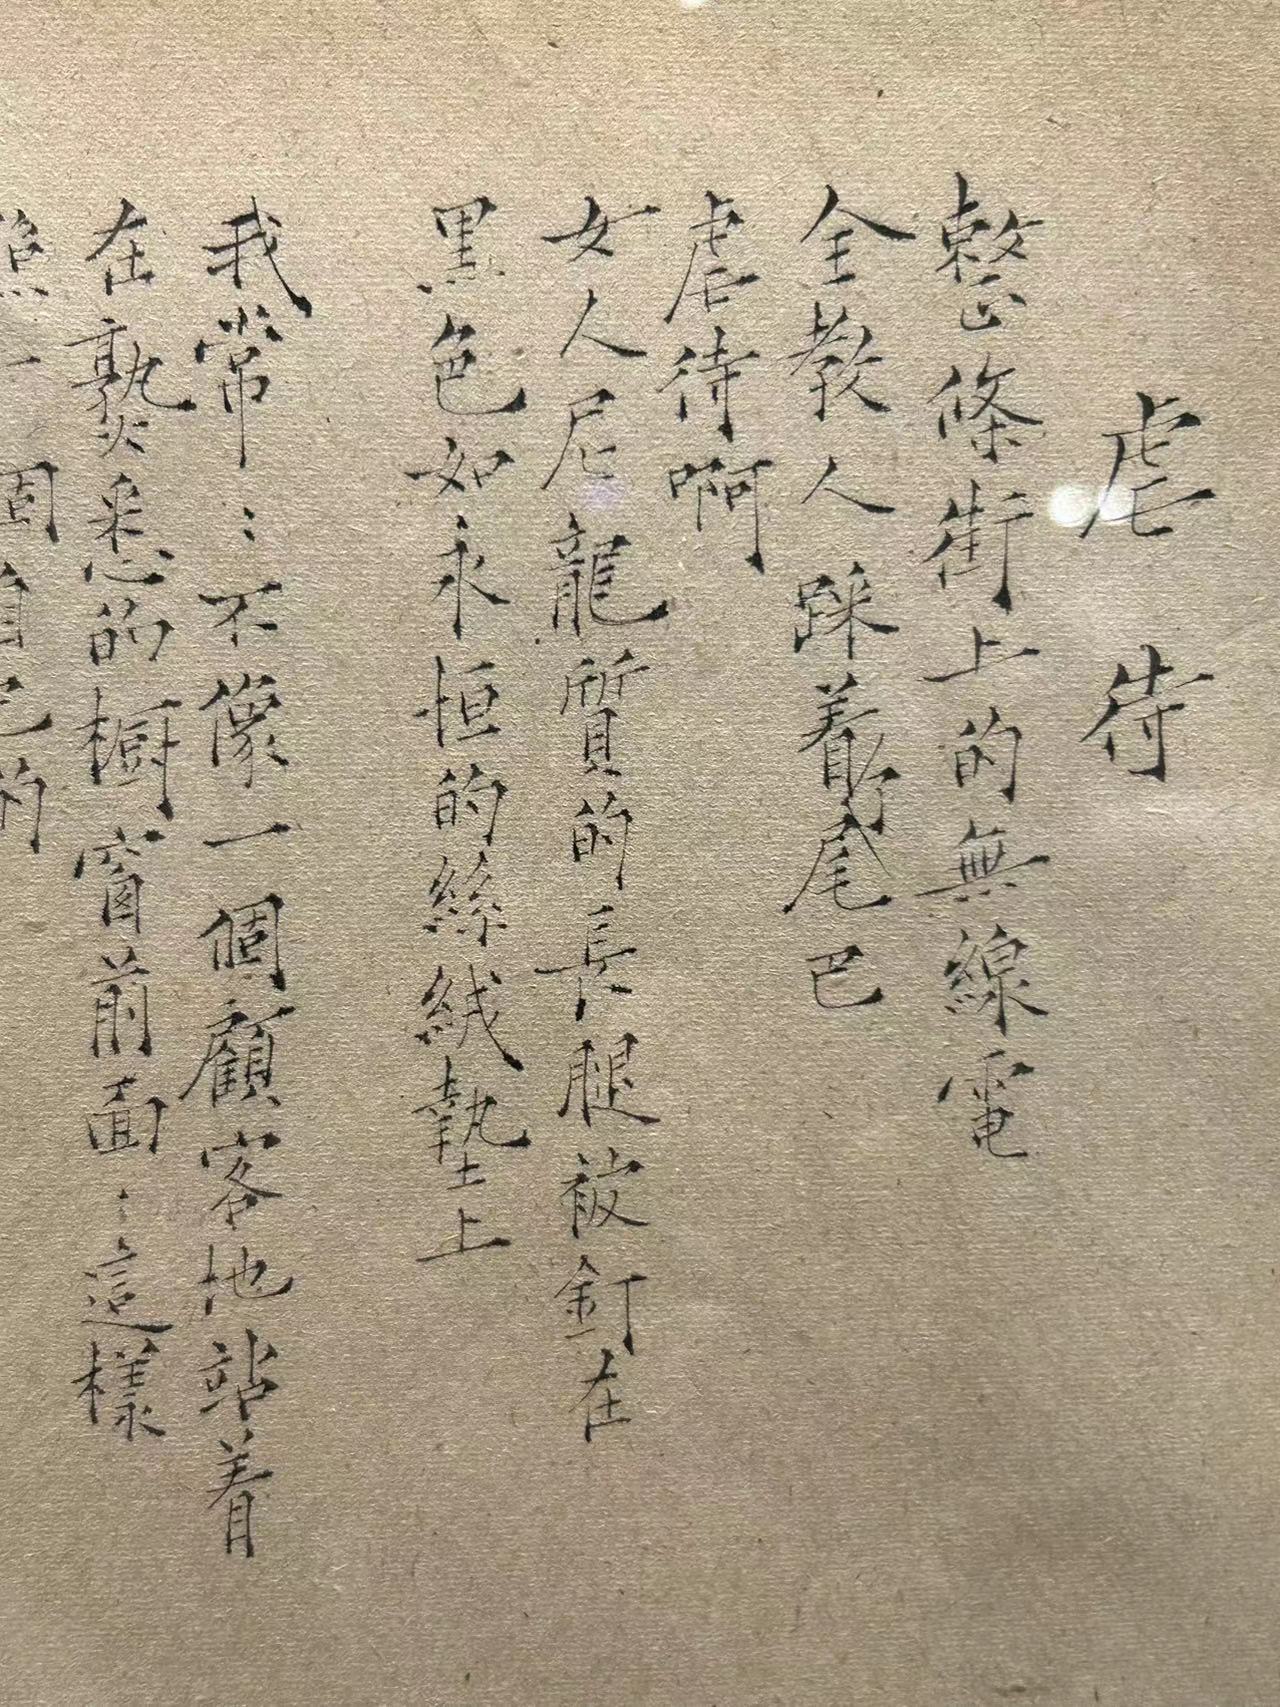 虐待
整條街上的無線電
全教人踩着了尾巴
虐待啊
女人尼龍質的長腿被釘在
黑色如永恒的絲絨墊上
我常⋮不像一個顧客地站着
在熟悉的橱窗前面⋮這樣
一個自己的